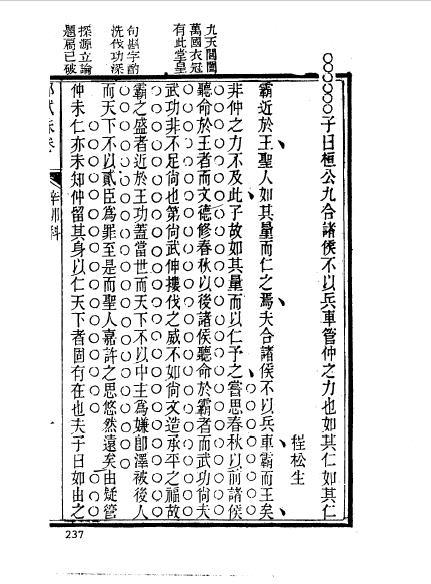 子曰桓公九合諸侯不以兵車管仲之力也如其仁如其仁
程松生
霸近於王聖人如其量而仁之焉夫合諸侯不以兵車霸而王矣
非仲之力不及此子故如其量而以仁予之嘗思春秋以前諸侯
聽命於王者而文德修春秋以後諸侯聽命於霸者而武功尚夫
武功非不足尚也第尚武伸摟伐之威不如尚文造承平之福故
霸之盛者近於王功蓋當世而天下不以中主為嫌卽澤被後人
而天下不以貳臣為罪至是而聖人嘉許之思悠然遠矣由疑管
仲未仁亦未知仲留其身以仁天下者固有在也夫子曰如由之
九天閶闔
萬國衣冠
有此堂皇
句斟字酌
洗伐功深
探源立論
題扃已破
237